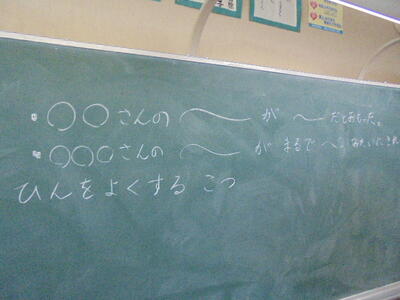 ・○○さんの 〜 が 〜 だとおもった。
・○○○さんの 〜 が まるで 〜 みたいにきれ
ひんをよくする こつ